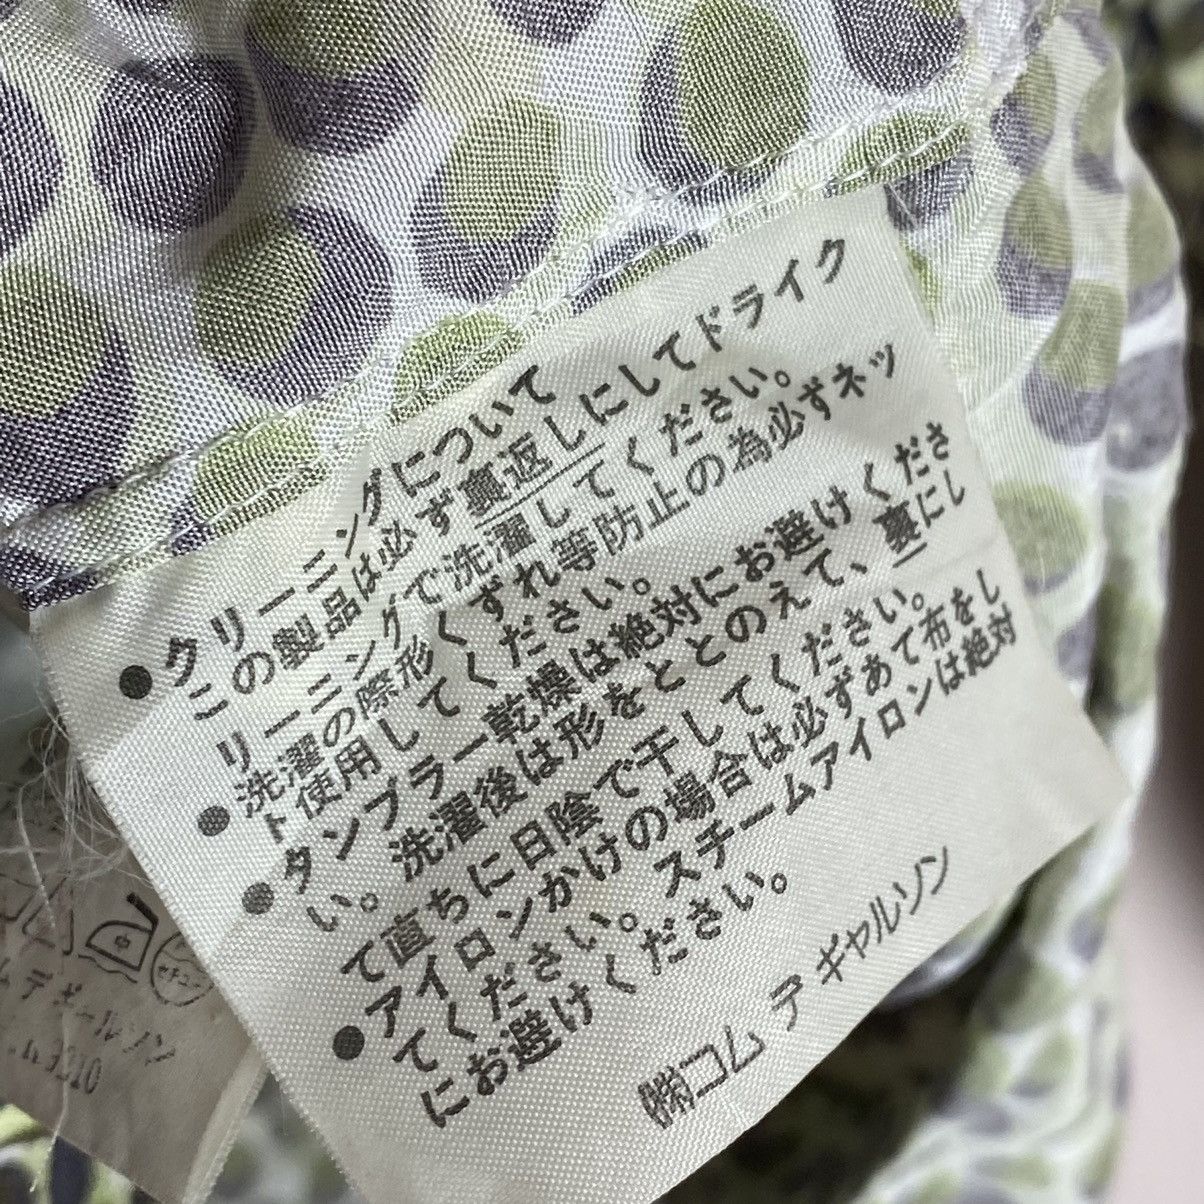 ●クリーニングについて
この製品は必ず裏返しにしてドライク
リーニングで洗濯してください。
●洗濯の際形くずれ等防止の為必ずネッ
ト使用してください。
●タンブラー乾燥は絶対にお避けくださ
い。洗濯後は形をととのえて、裏にし
て直ちに日陰で干してください。
●アイロンかけの場合は必ずあて布をし
てください。スチームアイロンは絶対
にお避けください。
㈱コム デ ギャルソン
ム デ ギャルソン
3210